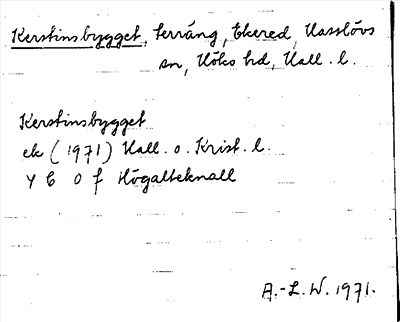 Kerstinsbygget, terräng, Ekered, Hasslövs
sn, Höks hd, Hall. l.
Kerstinsbygget
ek (1971) Hall. o. Krist. l.
4 C 0 f Högalteknall
A.-L. W. 1971.